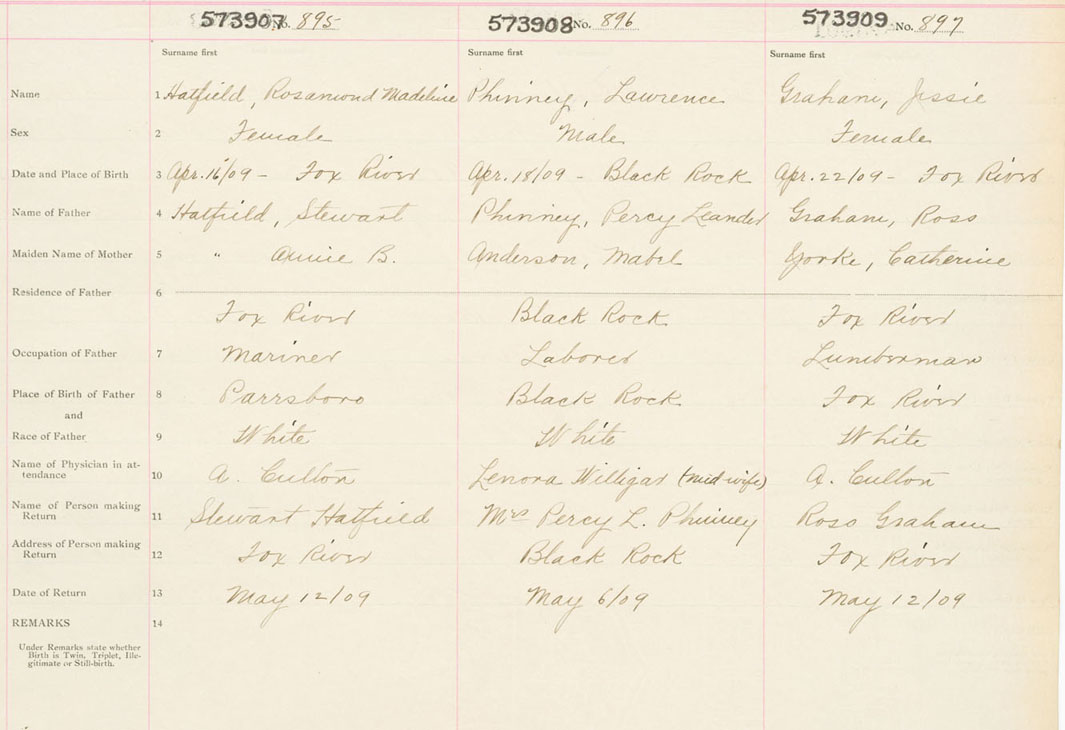 573907 No. 895 573908 No. 896 573909 No. 897
Surname first Surname first Surname first
Name 1 Hatfield, Rosamond Madeline Phinney, Lawrence Graham, Jessie
Sex 2 Female Male Female
Date and Place of Birth 3 Apr. 16/09 - Fox River Apr. 18/09 - Black Rock Apr. 22/09 - Fox River
Name of Father 4 Hatfield, Stewart Phinney, Percy Leander Graham, Ross
Maiden Name of Mother 5 " Annie B. Anderson, Mabel Yorke, Catherine
Residence of Father 6
Fox River Black Rock Fox River
Occupation of Father 7 Mariner Laborer Lumberman
Place of Birth of Father 8 Parrsboro Black Rock Fox River
and
Race of Father 9 White White White
Name of Physician in at-
tendance 10 A. Cullon Lenora Willigar (mid wife) A. Cullon
Name of Person making
Return 11 Stewart Hatfield Mrs Percy L. Phinney Ross Graham
Address of Person making
Return 12 Fox River Black Rock Fox River
Date of Return 13 May 12/09 May 6/09 May 12/09
REMARKS 14
Under Remarks state whether
Birth is Twin, Triplet, Ille-
gitimate or Still-birth.